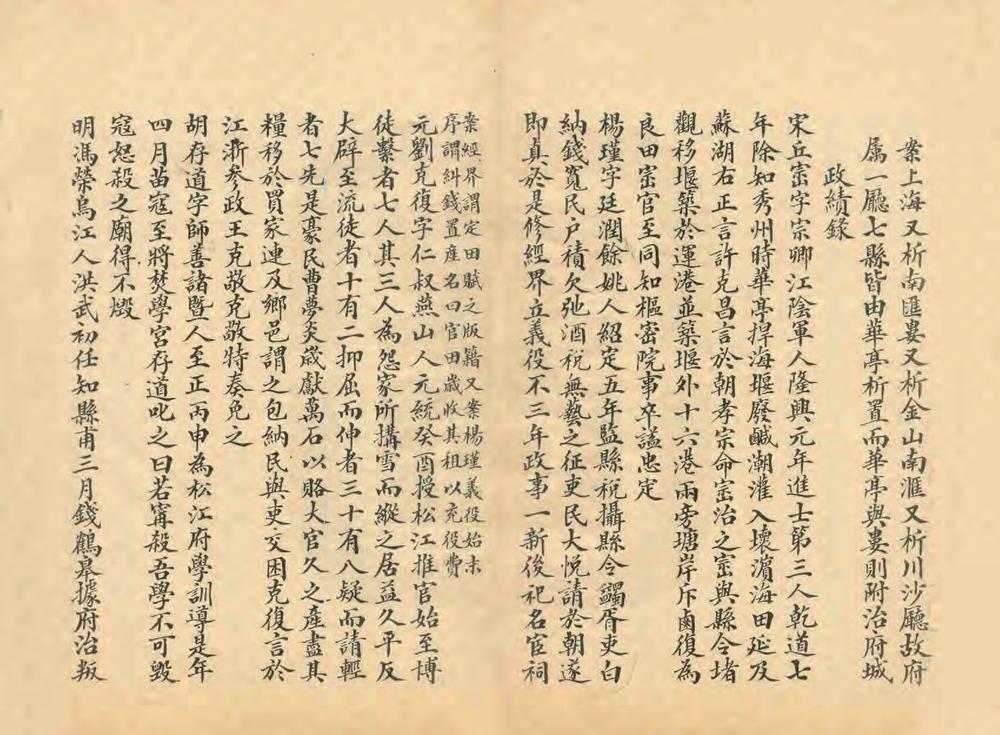 案上海又析南匯婁又析金山南滙又析川沙廳故府
属一廳七縣皆由華亭析置而華亭與婁則附治府城
政績錄
宋丘崈字宗卿江陰軍人隆興元年進士第三人乾道七
年除知秀州時華亭捍海堰廢鹹潮灌入壞濵海田延及
蘇湖右正言許克昌言於朝孝宗命崈治之崈與縣令堵
觀移堰築於運港並築堰外十六港兩旁塘岸斥鹵復為
良田崈官至同知樞密院事卒謚忠定
楊瑾字廷潤餘姚人紹定五年監縣稅攝縣令蠲胥吏白
納錢寬民户積欠弛酒税無藝之征吏民大悦請於朝遂
即真於是修經界立義役不三年政事一新後祀名宦祠
案經界謂定田賦之版籍又案楊瑾義役始末
序謂糾錢置産名曰官田歳收其租以充役費
元劉克復字仁叔燕山人元統癸酉授松江推官始至博
徒繫者七人其三人為怨家所搆雪而縱之居益久平反
大辟至流徒者十有二抑屈而伸者三十有八疑而請輕
者七先是豪民曹夢炎歳獻萬石以賂大官久之產盡其
糧移於買家連及鄉邑謂之包納民與吏交困克復言於
江浙參政王克敬克敬特奏免之
胡存道字師善諸暨人至正丙申為松江府學訓導是年
四月苗寇至將焚學宮存道叱之曰若甯殺吾學不可毀
寇怒殺之廟得不燬
明馮榮烏江人洪武初任知縣甫三月錢鶴皋據府治叛